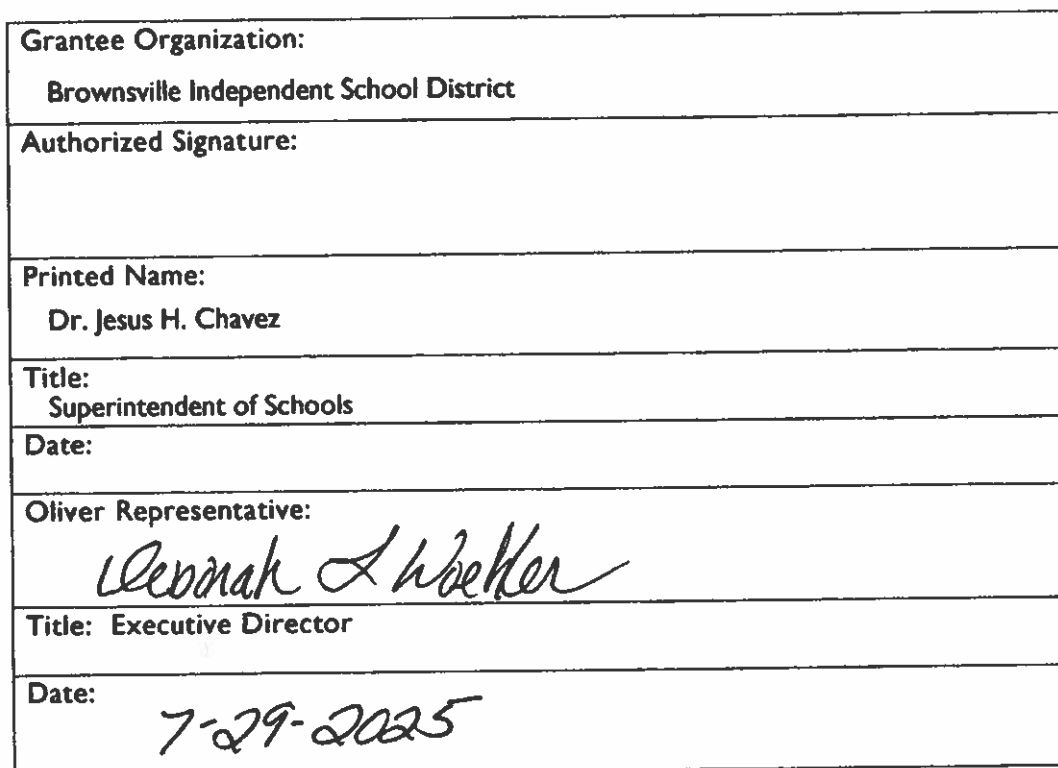 Grantee Organization:
Brownsville Independent School District
Authorized Signature:
Printed Name:
Dr. Jesus H. Chavez
Title:
Superintendent of Schools
Date:
Oliver Representative:
Deborah L Woehler
Title: Executive Director
Date:
7-29-2025